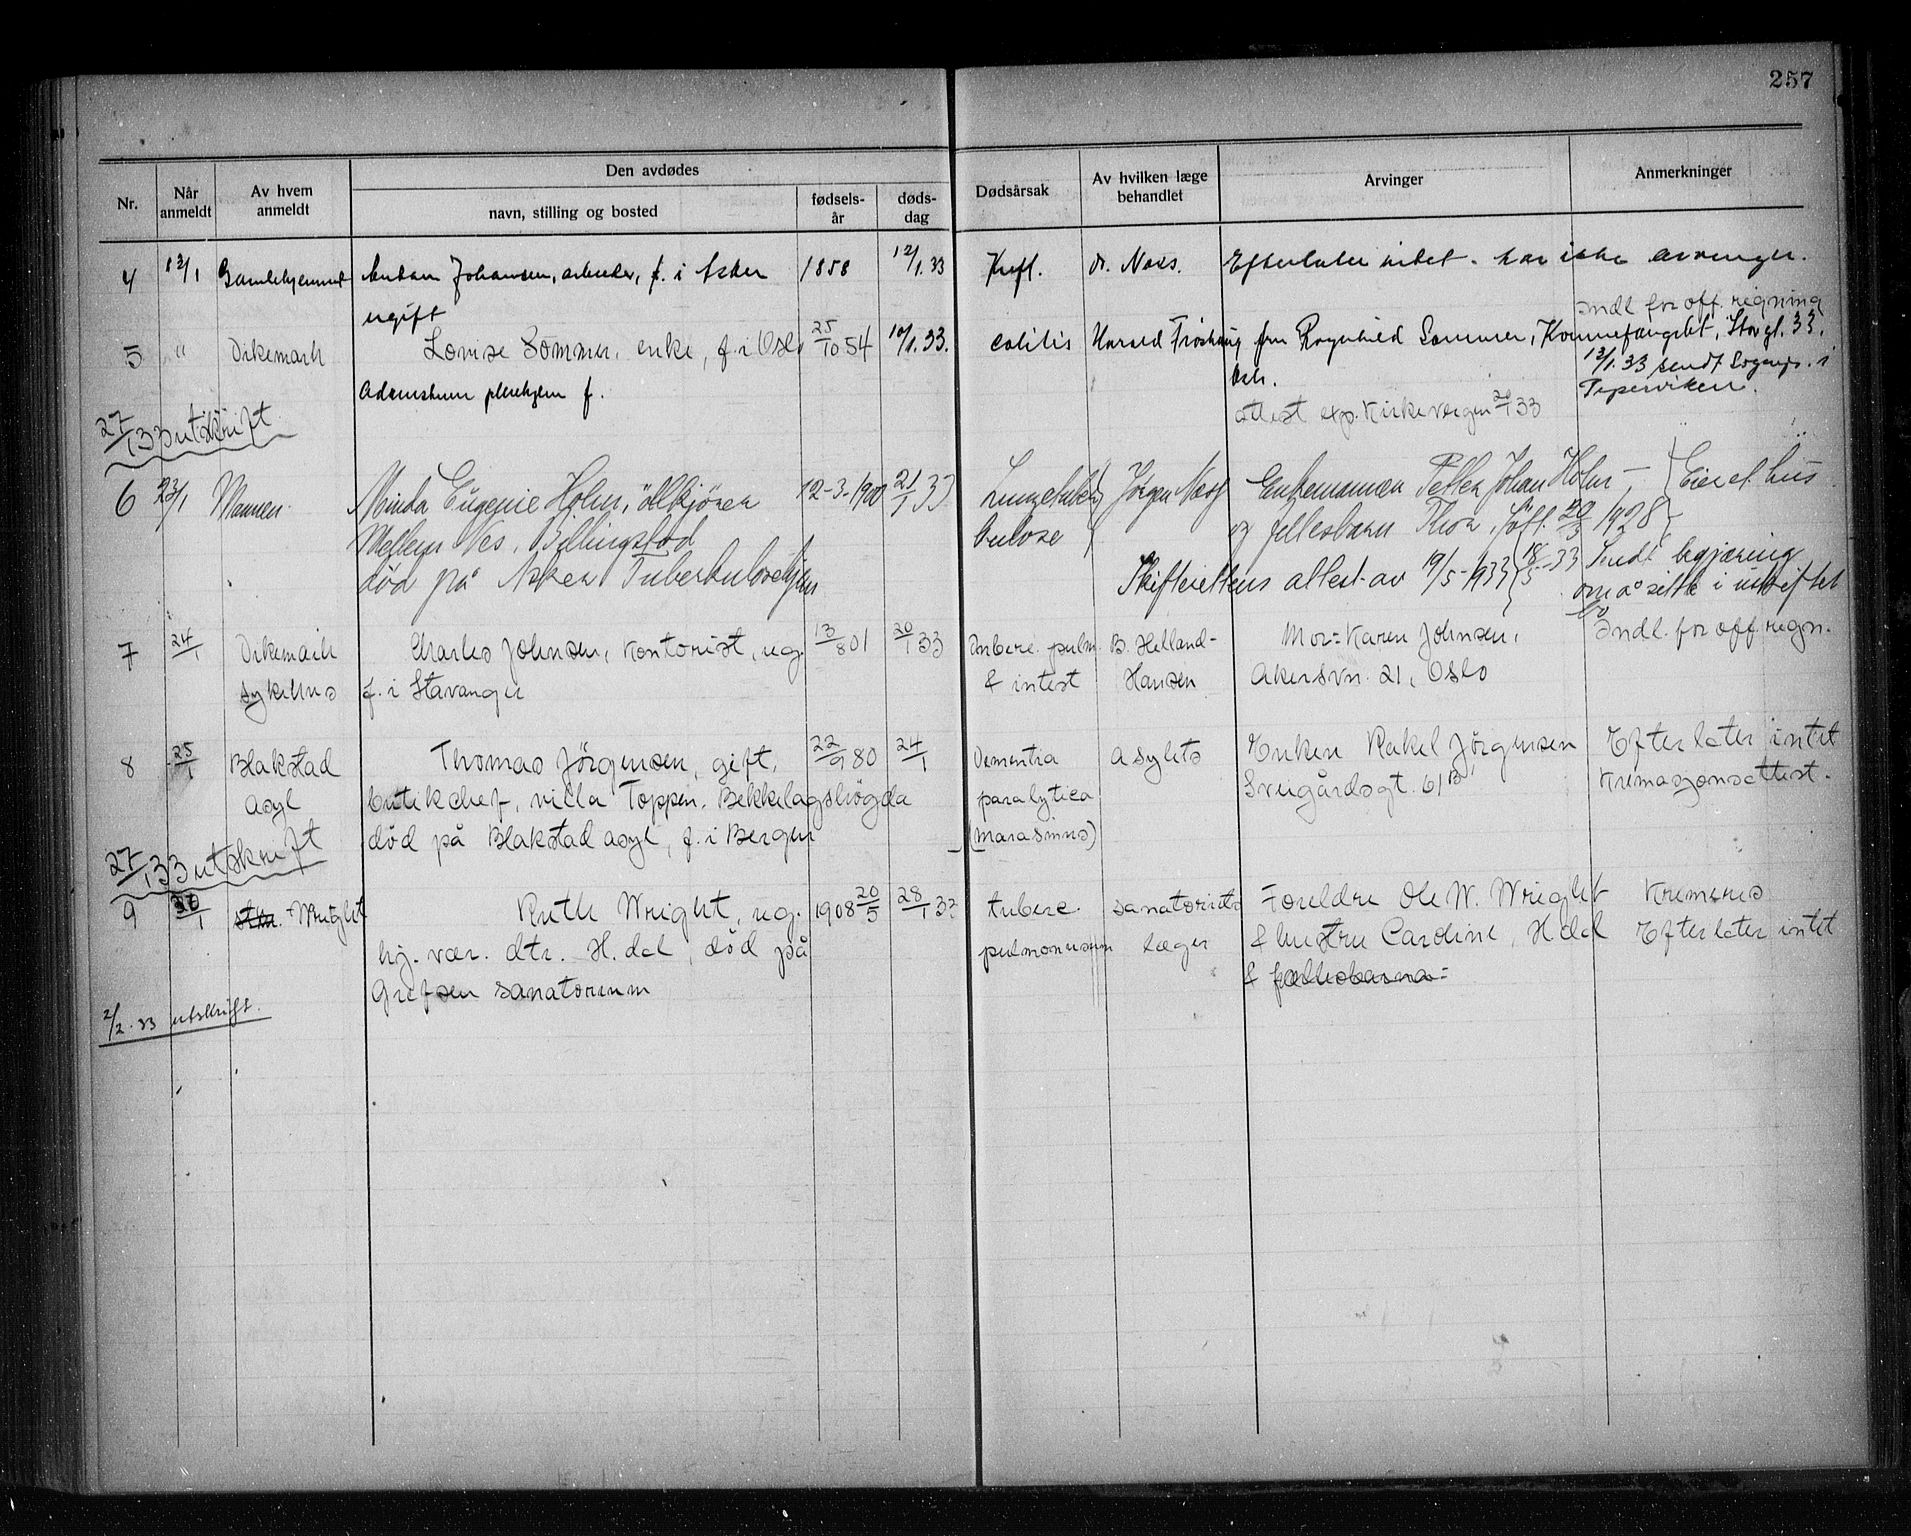 257
Nr. Når anmeldt Av hvem anmeldt Den avdødes navn, stilling og bosted fødsels-år døds-dag Dødsårsak Av hvilken læge behandlet Arvinger Anmerkninger
4 13/1 Gamlehjemmet Johansen, arbeider, f. i Asker 1858 12/1.33 Kreft. dr. Næss. Efterlater intet. har ikke arvinger.
ugift
indl for off. regning
5 " Dikemark Lovise Sommer, enke, f. i Oslo 25/10 54 10/1.33. colitis Harald Frøshaug fru Ragnhild Sommer, Kvinnefengslet, Storgt. 33.
Oslo.
12/1.33 sendt Sognepr. i
Pipervi­ken.
f.
attest exp. Kirkevergen 20/1 33
27/1 33 utskrift
6 23/1 Mannen Minda Eugenie Holm, ølkjører 12-3-1900 21/1 33 Lungetuber- Jørgen Næss Enkemannen Petter Johan Holm — Eier et hus
Mellem Nes, Billingstad kulose og fellesbarn Thor, født 20/3 1928
død på Asker Tuberkulosehjem Skifterettens attest av 19/5-1933 18/5-33 Sendt begjæring
om å sitte i uskiftet
bo
7 24/1 Dikemark Charles Johnsen, kontorist, ug. 13/8 01 20/1 33 Tuberc. pulm. B. Helland- Mor = Karen Johnsen, Indl. for off. regn.
sykehus f. i Stavanger & intest Hansen Akersvn. 21, Oslo
8 25/1 Blakstad Thomas Jörgensen, gift, 22/9 80 24/1 Dementia asylets Enken Rakel Jørgensen Efterlater intet
asyl butikchef, villa Toppen, Bekkelagshøgda paralytica Sveigårdsgt. 61 B Kremasjonsattest.
død på Blakstad asyl, f. i Bergen (marasmus)
27/1 33 utskrift
9 30/1 Wright Ruth Wright, ug. 1908 20/5 28/1 33 tuberc. sanatoriets Foreldre Ole W. Wright Kremeres
hj. vær. dtr. H.dal, død på pulmonum læger & hustru Cardine, H.dal Efterlater intet
Grefsen sanatorium & fællesbarna =
2/2.33 utskrift.